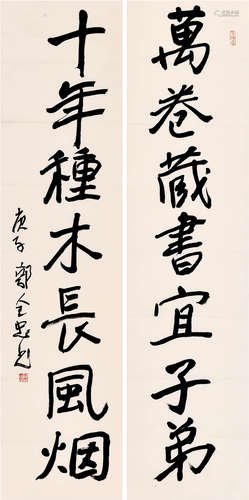 萬卷藏書宜子弟
十年種木長風烟
庚子